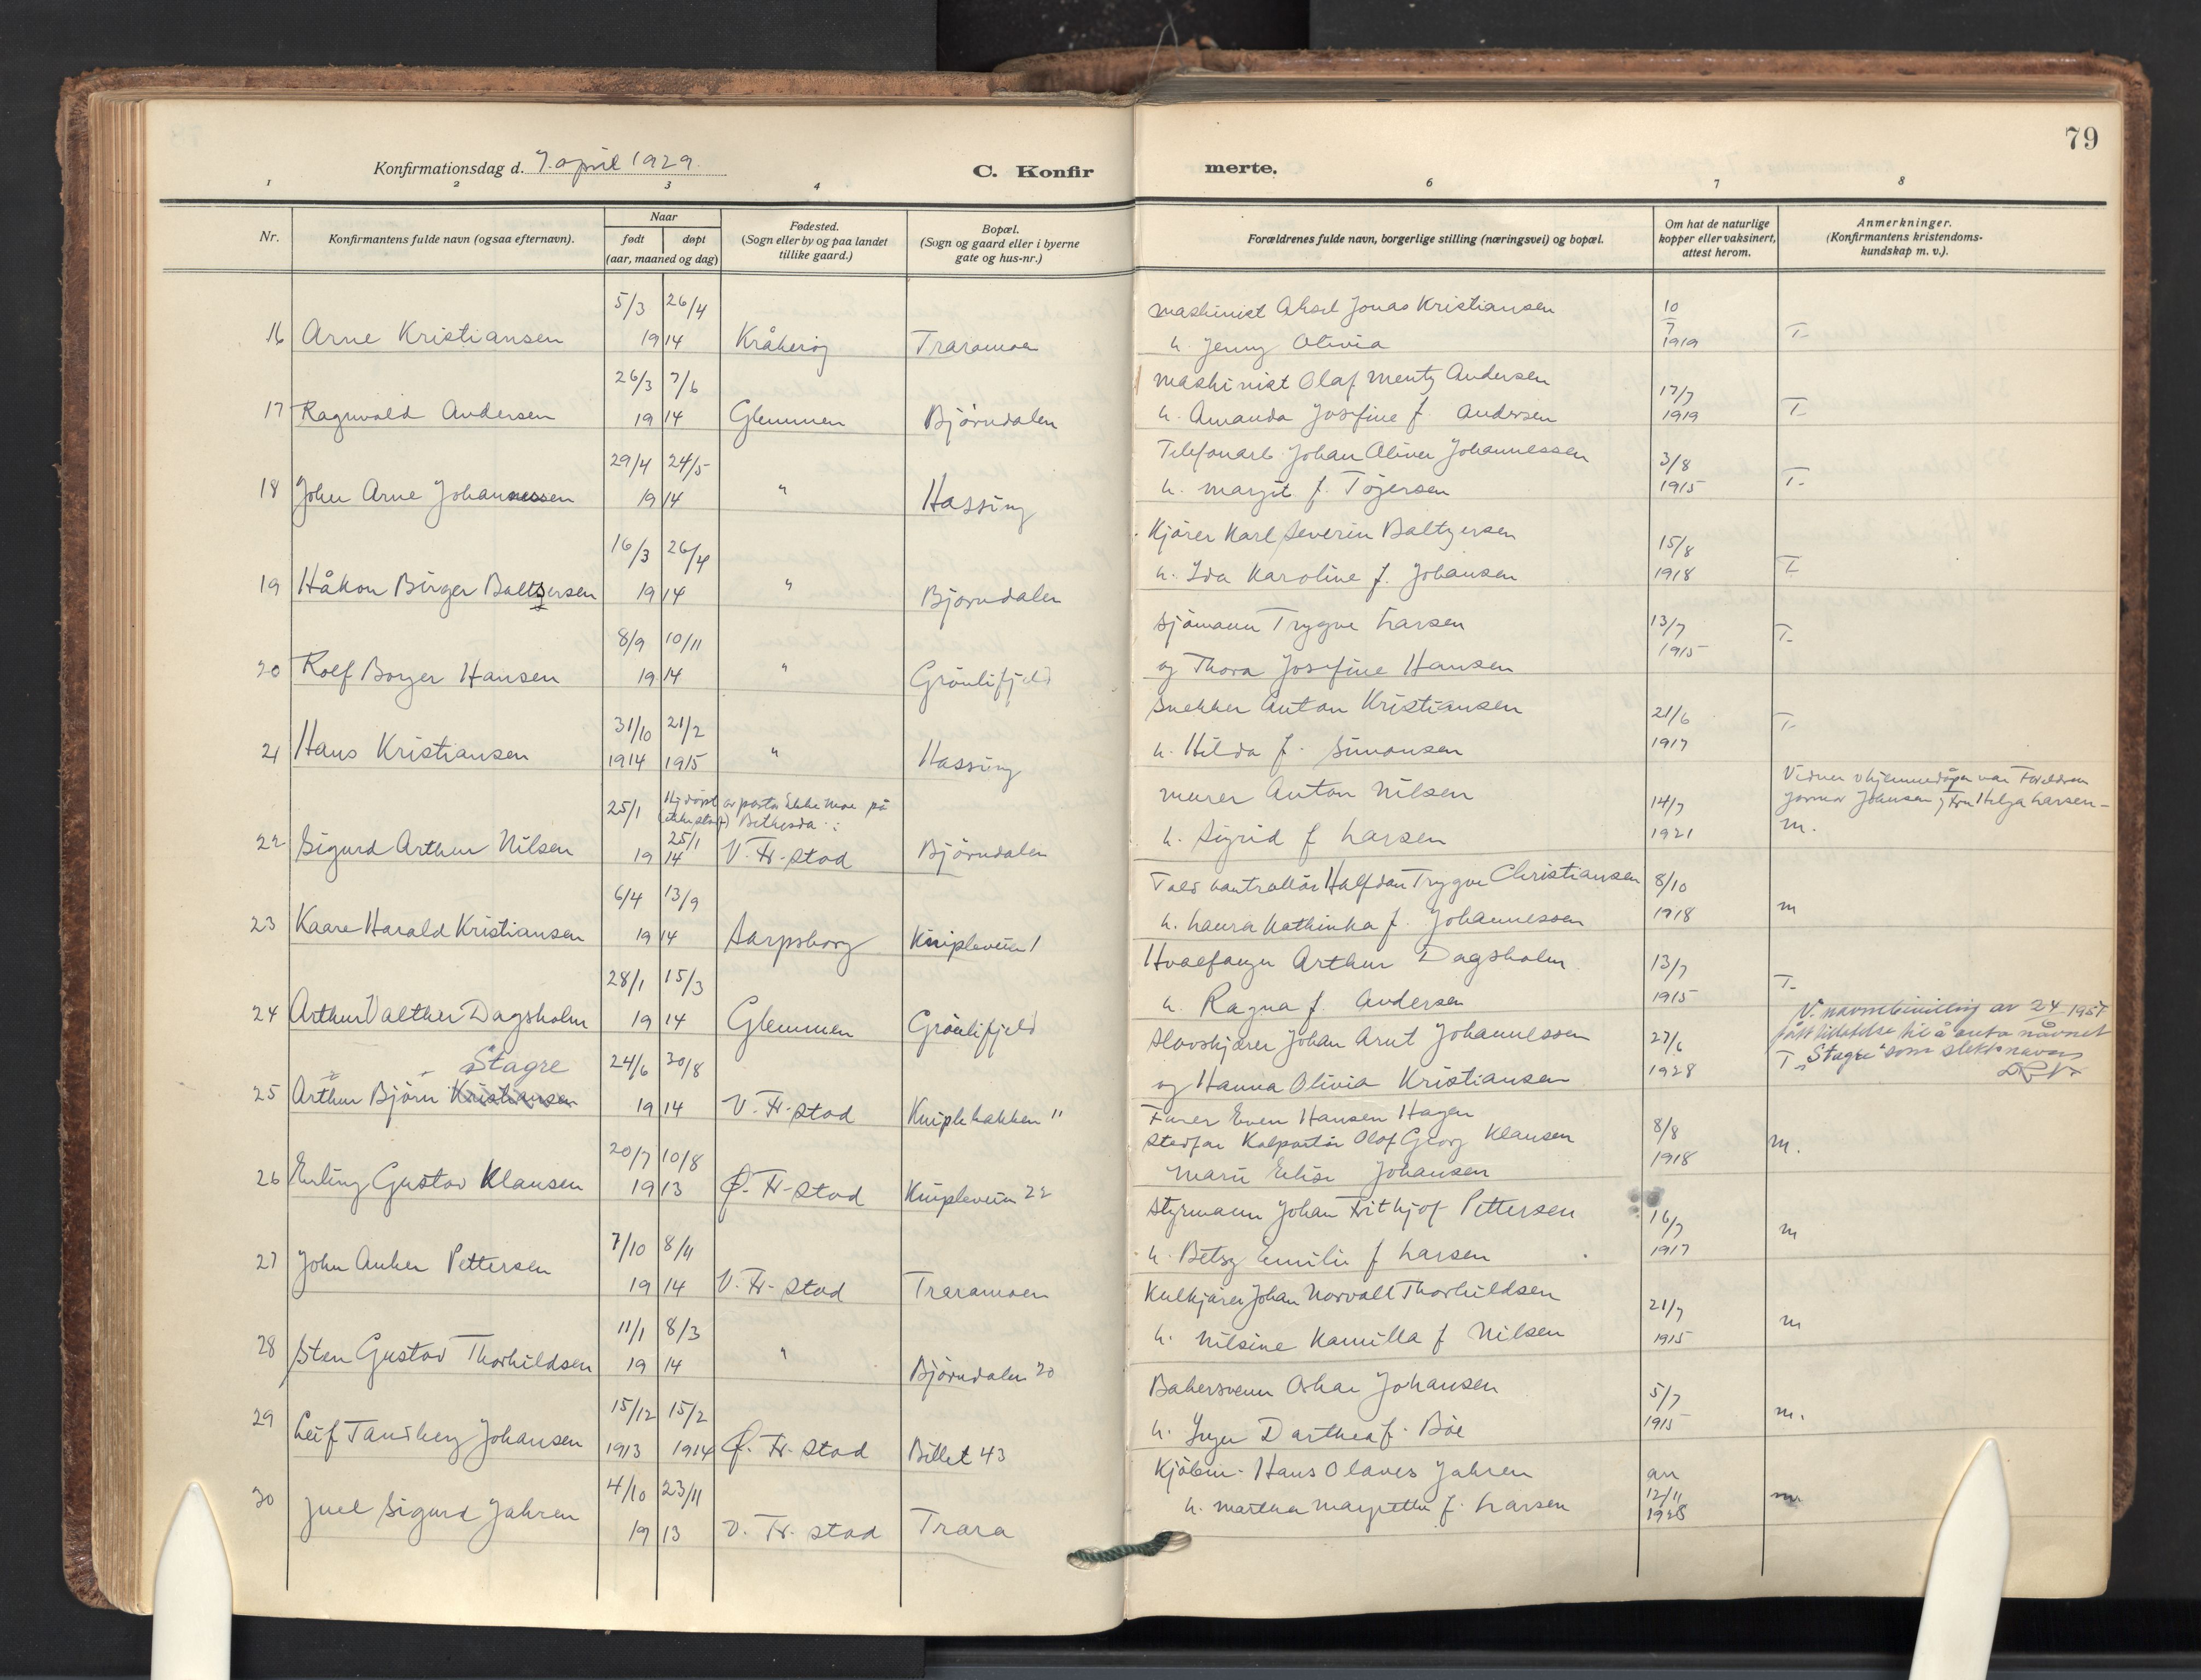 79
Konfirmationsdag d. 7. april 1929.
C. Konfir
merte.
1 2 3 4 6 7 8
Nr.
Konfirmantens fulde navn (ogsaa efternavn).
Naar
født døpt
(aar, maaned og dag)
Fødested.
(Sogn eller by og paa landet
tillike gaard.)
Bopæl.
(Sogn og gaard eller i byerne
gate og hus-nr.)
Forældrenes fulde navn, borgerlige stilling (næringsvei) og bopæl.
Om hat de naturlige
kopper eller vaksinert,
attest herom.
Anmerkninger.
(Konfirmantens kristendoms-
kundskap m. v.).
5/3 26/4 Maskinist Aksel Jonas Kristiansen 10/7
16 Arne Kristiansen 19 14 Kråkerøy Traramoen h. Jenny Olivia 1919 T-
26/3 7/6 Maskinist Olaf Mentz Andersen 17/7
17 Ragnvald Andersen 19 14 Glemmen Björndalen h. Amanda Josefine f. Andersen 1919 T-
29/4 24/5 Telefonarb. Johan Oliver Johannessen 3/8
18 John Arne Johannessen 19 14 " Hassing h. Margit f. Töjersen 1915 T-
16/3 26/4 Kjörer Karl Severin Baltzersen 15/8
19 Håkon Birger Baltzersen 19 14 " Björndalen h. Ida Karoline f. Johansen 1918 T-
8/9 10/11 Sjömann Trygve Larsen 13/7
20 Rolf Borger Hansen 19 14 " Grönlifjeld og Thora Josefine Hansen 1915 T-
31/10 21/2 Snekker Anton Kristiansen 21/6
21 Hans Kristiansen 1914 1915 " Hassing h. Hilda f. Simonsen 1917 T-
25/1 Hj.döpt av pastor Moe på Bethesda Murer Anton Nilsen 14/7
Jormar Johansen Helga Larsen -
22 Sigurd Arthur Nilsen 19 25/1 14 V. Fr-stad Björndalen h. Sigrid f Larsen 1921 m.
6/4 13/9 Toldkontrollör Halfdan Trygve Christiansen 8/10
23 Kaare Harald Kristiansen 19 14 Sarpsborg Knipleveien 1 h. Laura Kathinka f. Johannessen 1918 m
28/1 15/3 Hvalfanger Arthur Dagsholm 13/7
24 Arthur Valther Dagsholm 19 14 Glemmen Grönlifjeld h. Ragna f. Andersen 1915 T-
V. navnebevilling av 24 1951
fått tillatelse til å anta navnet
"Stagre" som slektsnavn
Stagre 24/6 30/8 Slovskjærer Johan Arnt Johannessen 27/6
25 Arthur Björn Kristiansen 19 14 V. Fr-stad Kniplebakken 11 og Hanna Olivia Kristiansen 1928 T
Furer Even Hansen Hagen
20/7 10/8 Stedfar Kolportör Olof Georg Klausen 8/8
26 Erling Gustav Klausen 19 13 Ø. Fr-stad Knipleveien 22 Marie Elise Johansen 1918 m.
7/10 8/11 Styrmann Johan Frithjof Pettersen 16/7
27 John Anker Pettersen 19 14 V. Fr-stad Traramoen h. Betsy Emilie f Larsen 1917 m
11/1 8/3 Kulkjörer Johan Norvall Thorhildsen 21/7
28 Sten Gustav Thorhildsen 19 14 " Björndalen 20 h. Nilsine Kamilla f Nilsen 1915 m
15/12 15/2 Bakersvenn Oskar Johansen 5/7
29 Leif Tandberg Johansen 1913 1914 Ø. Fr-stad Billet 43 h. Inger Darthea f. Böe 1915 m.
4/10 23/11 Kjöbm. Hans Olaves Jahren an 12/11
30 Juel Sigurd Jahren 19 13 V. Fr. stad Trara h. Martha Margrethe f. Larsen 1928 m